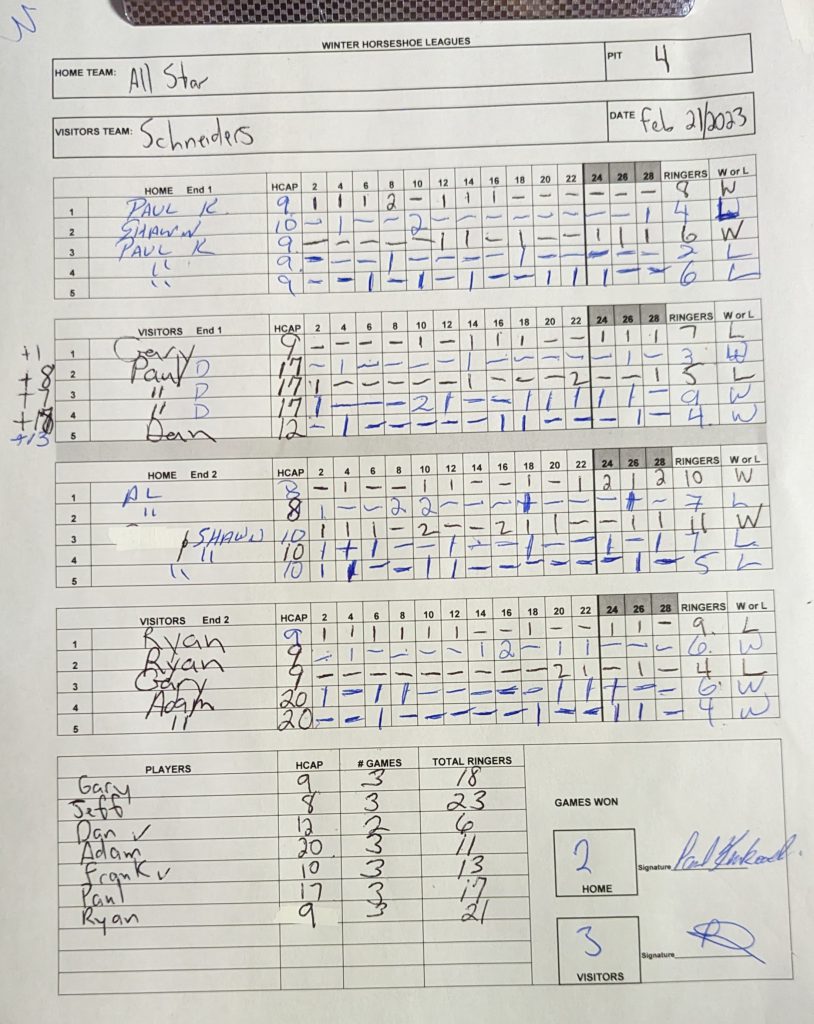 WINTER HORSESHOE LEAGUES
HOME TEAM: All Star PIT 4
VISITORS TEAM: Schneiders DATE Feb 21/2023
HOME End 1 HCAP 2 4 6 8 10 12 14 16 18 20 22 24 26 28 RINGERS W or L
1 PAUL K. 9 1 1 1 2 - 1 1 1 - - - - - - 8 W
2 SHAWN 10 - 1 - - 2 - - - - - - - - 1 4
3 PAUL K 9 - - - - - 1 1 - 1 - - 1 1 1 6 W
4 " 9 - - - 1 - - - - 1 - - - - - 2 L
5 " 9 - - 1 - 1 - 1 - - 1 1 1 - - 6 L
VISITORS End 1 HCAP 2 4 6 8 10 12 14 16 18 20 22 24 26 28 RINGERS W or L
+1 1 Gerry 9 - - - - 1 - 1 1 1 - - 1 1 1 7 L
+8 2 Paul D 17 - 1 - - - - 1 - - - - - 1 - 3 W
+7 3 " D 17 1 - - - - - 1 - - - 2 - - 1 5 L
4 " D 17 1 - - - 2 1 - - 1 1 1 1 1 - 9 W
+13 5 Dan 12 - 1 - - - - - 1 1 - - - 1 - 4 W
HOME End 2 HCAP 2 4 6 8 10 12 14 16 18 20 22 24 26 28 RINGERS W or L
1 AL 8 - 1 - - 1 1 - - 1 - 1 2 1 2 10 W
2 " 8 1 - - 2 2 - - - 1 - - - 1 - 7 L
3 SHAWN 10 1 1 1 - 2 - - 2 1 1 - - 1 1 11 W
4 " 10 1 1 1 - - 1 - - 1 - - 1 - 1 7 L
5 " 10 1 1 - - 1 1 - - - - - - 1 - 5 L
VISITORS End 2 HCAP 2 4 6 8 10 12 14 16 18 20 22 24 26 28 RINGERS W or L
1 Ryan 9 1 1 1 1 1 1 - - 1 - - 1 1 - 9. L
2 Ryan 9 - 1 - - - - 1 2 - 1 1 - - - 6. W
3 Gary 9 - - - - - - - - - 2 1 - 1 - 4 L
4 Adam 20 1 - 1 1 - - - - - 1 1 1 - - 6. W
5 " 20 - - 1 - - - - - 1 - - 1 1 - 4 W
PLAYERS HCAP # GAMES TOTAL RINGERS
Gary 9 3 18
Jeff 8 3 23
Dan ✓ 12 2 6
Adam 20 3 11
Frank ✓ 10 3 13
Paul 17 3 17
Ryan 9 3 21
GAMES WON
2
HOME
Signature
3
VISITORS
Signature